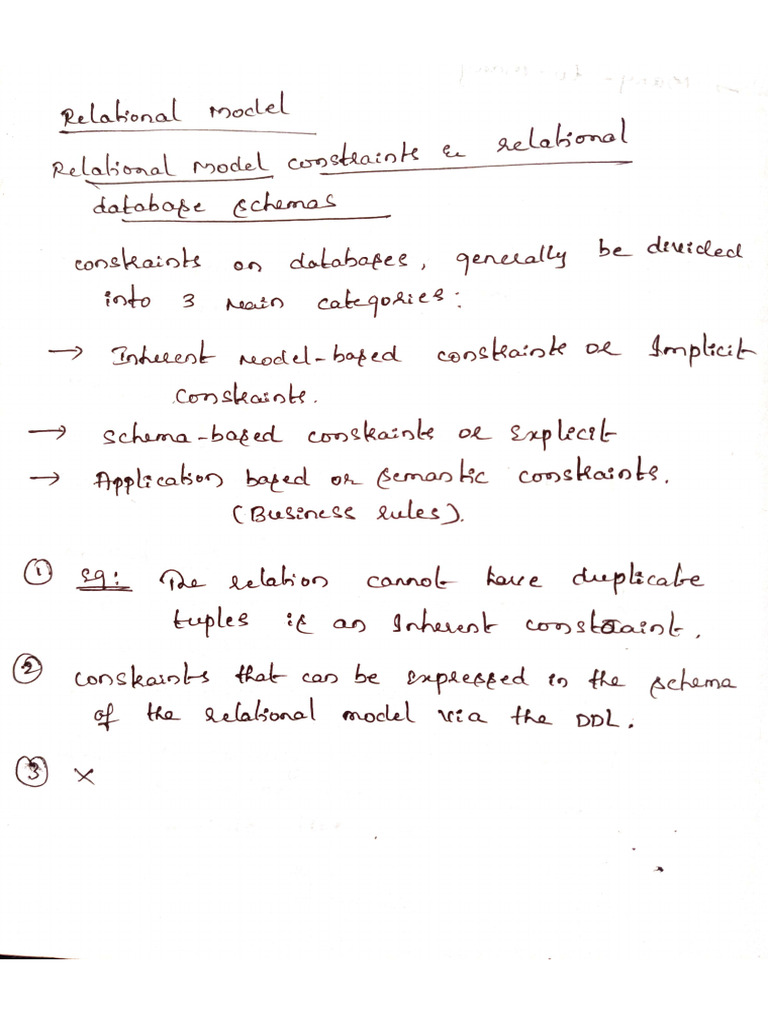 Relational Model
Relational Model constraints & relational
database schemas
constraints on databases, generally be divided
into 3 main categories:
→ Inherent model-based constraints or Implicit
constraints.
→ schema-based constraints or Explicit
→ Application based or semantic constraints.
(Business rules).
① eg: The relation cannot have duplicate
tuples is an Inherent constraint.
② constraints that can be expressed in the schema
of the relational model via the DDL.
③ ×